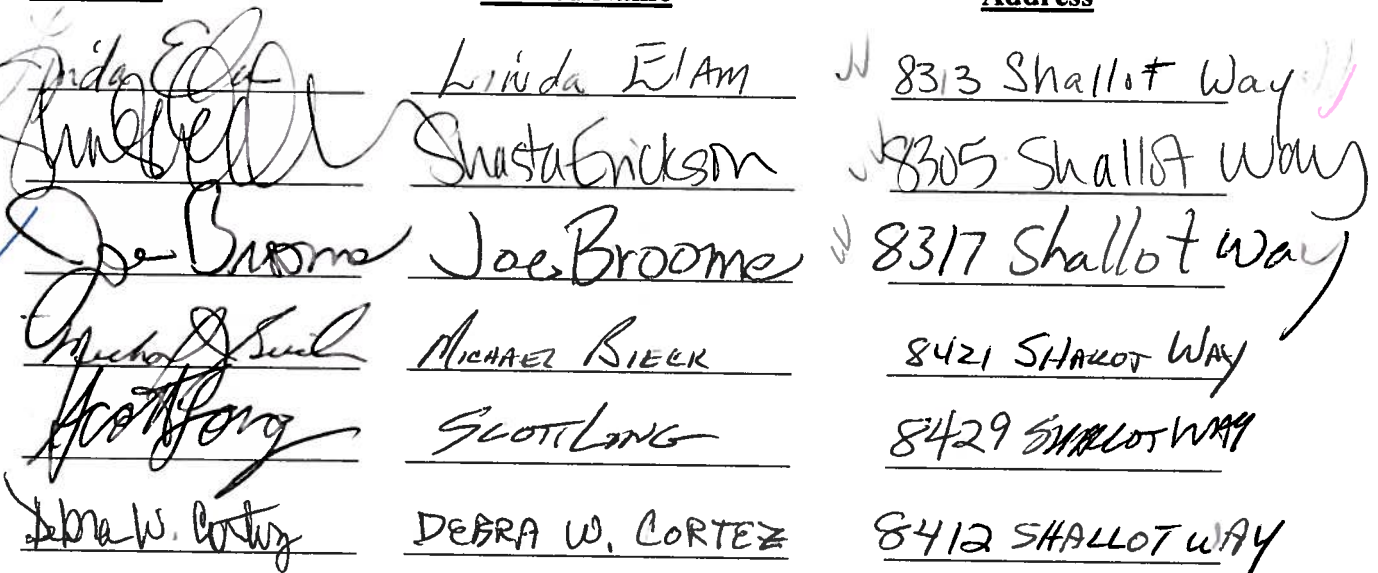 Address
Linda Elam Linda ElAm 8313 Shallot Way
Shasta Erickson 8305 Shallot Way
Joe Broome Joe Broome 8317 Shallot Way
MICHAEL BIECK 8421 SHALLOT WAY
Scott Long SCOTT LONG 8429 SHALLOT WAY
Debra W. Cortez DEBRA W. CORTEZ 8412 SHALLOT WAY